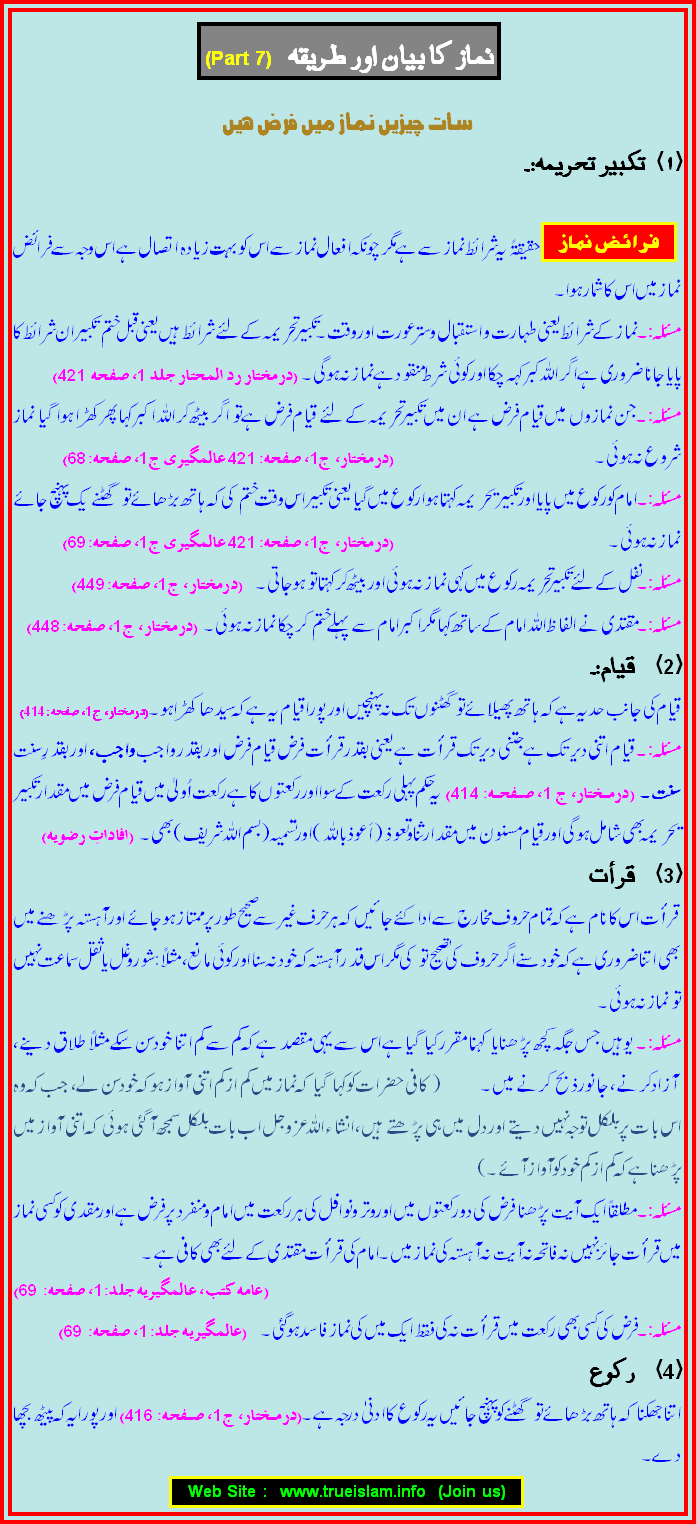 نماز کا بیان اور طریقہ (Part 7)
سات چیزیں نماز میں فرض ہیں
(1) تکبیر تحریمہ:۔
فرائض نماز حقیقۃً یہ شرائط نماز سے ہے مگر چونکہ افعال نماز سے اس کو بہت زیادہ اتصال ہے اس وجہ سے فرائض
نماز میں اس کا شمار ہوا ۔
مسئلہ:۔ نماز کے شرائط یعنی طہارت و استقبال و ستر عورت اور وقت ۔ تکبیر تحریمہ کے لئے شرائط ہیں یعنی قبل ختم تکبیر ان شرائط کا
پایا جانا ضروری ہے اگر اللہ اکبر کہہ چکا اور کوئی شرط مفقود ہے نماز نہ ہوگی ۔ (درمختار رد المحتار جلد 1، صفحہ 421)
مسئلہ:۔ جن نمازوں میں قیام فرض ہے ان میں تکبیر تحریمہ کے لئے قیام فرض ہے تو اگر بیٹھ کر اللہ اکبر کہا پھر کھڑا ہوا گیا نماز
شروع نہ ہوئی ۔ (درمختار، ج1، صفحہ: 421 عالمگیری ج1، صفحہ: 68)
مسئلہ:۔ امام کو رکوع میں پایا اور تکبیر تحریمہ کہتا ہوا رکوع میں گیا یعنی تکبیر اس وقت ختم کی کہ ہاتھ بڑھائے تو گھٹنے یک پہنچ جائے
نماز نہ ہوئی ۔ (درمختار، ج1، صفحہ: 421 عالمگیری ج1، صفحہ: 69)
مسئلہ:۔ نفل کے لئے تکبیر تحریمہ رکوع میں کہی نماز نہ ہوئی اور بیٹھ کر کہتا تو ہو جاتی ۔ (درمختار، ج1، صفحہ: 449)
مسئلہ:۔ مقتدی نے الفاظ اللہ امام کے ساتھ کہا مگر اکبر امام سے پہلے ختم کر چکا نماز نہ ہوئی ۔ (درمختار، ج1، صفحہ: 448)
(2) قیام:۔
قیام کی جانب حد یہ ہے کہ ہاتھ پھیلائے تو گھٹنوں تک نہ پہنچیں اور پورا قیام یہ ہے کہ سیدھا کھڑا ہو ۔ (درمختار، ج1، صفحہ: 414)
مسئلہ:۔ قیام اتنی دیر تک ہے جتنی دیر تک قرأت ہے یعنی بقدر قرأت فرض قیام فرض اور بقدر واجب واجب، اور بقدرِ سنت
سنت ۔ (درمختار، ج 1، صفحہ: 414) یہ حکم پہلی رکعت کے سوا اور رکعتوں کا ہے رکعت اُولیٰ میں قیام فرض میں مقدار تکبیر
تحریمہ بھی شامل ہوگی اور قیام مسنون میں مقدار ثنا و تعوذ (أعوذ باللہ) اور تسمیہ (بسم اللہ شریف) بھی ۔ (افاداتِ رضویہ)
(3) قرأت
قرأت اس کا نام ہے کہ تمام حروف مخارج سے ادا کئے جائیں کہ ہر حرف غیر سے صحیح طور پر ممتاز ہو جائے اور آہستہ پڑھنے میں
بھی اتنا ضروری ہے کہ خود سنے اگر حروف کی تصحیح تو کی مگر اس قدر آہستہ کہ خود نہ سنا اور کوئی مانع، مثلاً: شور و غل یا ثقل سماعت نہیں
تو نماز نہ ہوئی ۔
مسئلہ:۔ یوہیں جس جگہ کچھ پڑھنا یا کہنا مقرر کیا گیا ہے اس سے یہی مقصد ہے کہ کم سے کم اتنا خود سن سکے مثلاً طلاق دینے،
آزاد کرنے، جانور ذبح کرنے میں ۔ (کافی حضرات کو کہا گیا کہ نماز میں کم از کم اتنی آواز ہو کہ خود سن لے، جب کہ وہ
اس بات پر بلکل توجہ نہیں دیتے اور دل میں ہی پڑھتے ہیں، انشاء اللہ عزوجل اب بات بلکل سمجھ آ گئی ہوئی کہ اتنی آواز میں
پڑھنا ہے کہ کم از کم خود کو آواز آئے ۔)
مسئلہ:۔ مطلقاً ایک آیت پڑھنا فرض کی دو رکعتوں میں اور وتر و نوافل کی ہر رکعت میں امام و منفرد پر فرض ہے اور مقدی کو کسی نماز
میں قرأت جائز نہیں نہ فاتحہ نہ آیت نہ آہستہ کی نماز میں ۔ امام کی قرأت مقتدی کے لئے بھی کافی ہے ۔
(عامہ کتب، عالمگیریہ جلد: 1، صفحہ: 69)
مسئلہ:۔ فرض کی کسی بھی رکعت میں قرأت نہ کی فقط ایک میں کی نماز فاسد ہو گئی ۔ (عالمگیریہ جلد: 1، صفحہ: 69)
(4) رکوع
اتنا جھکنا کہ ہاتھ بڑھائے تو گھٹنے کو پہنچ جائیں یہ رکوع کا ادنیٰ درجہ ہے ۔ (درمختار، ج1، صفحہ: 416) اور پورا یہ کہ پیٹھ بچھا
دے ۔
Web Site : www.trueislam.info (Join us)